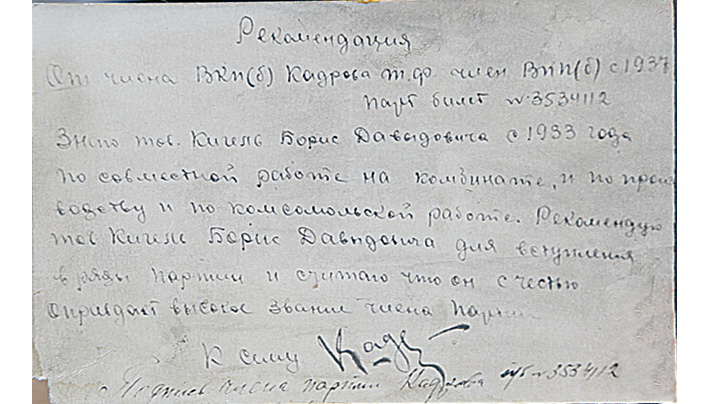 Рекомендация
От члена ВКП(б) Кадрова т.ф. член ВКП(б) с 1937
парт билет №3534112
Знаю тов. Кигель Борис Давыдовича с 1933 года
по совместной работе на комбинате, и по произ
водству и по комсомольской работе. Рекомендую
тов Кигель Борис Давыдовича для вступления
в ряды партии и считаю что он с честью
оправдает высокое звание члена парти
К сему Кад
Подпись члена партии Кадрова №3534112